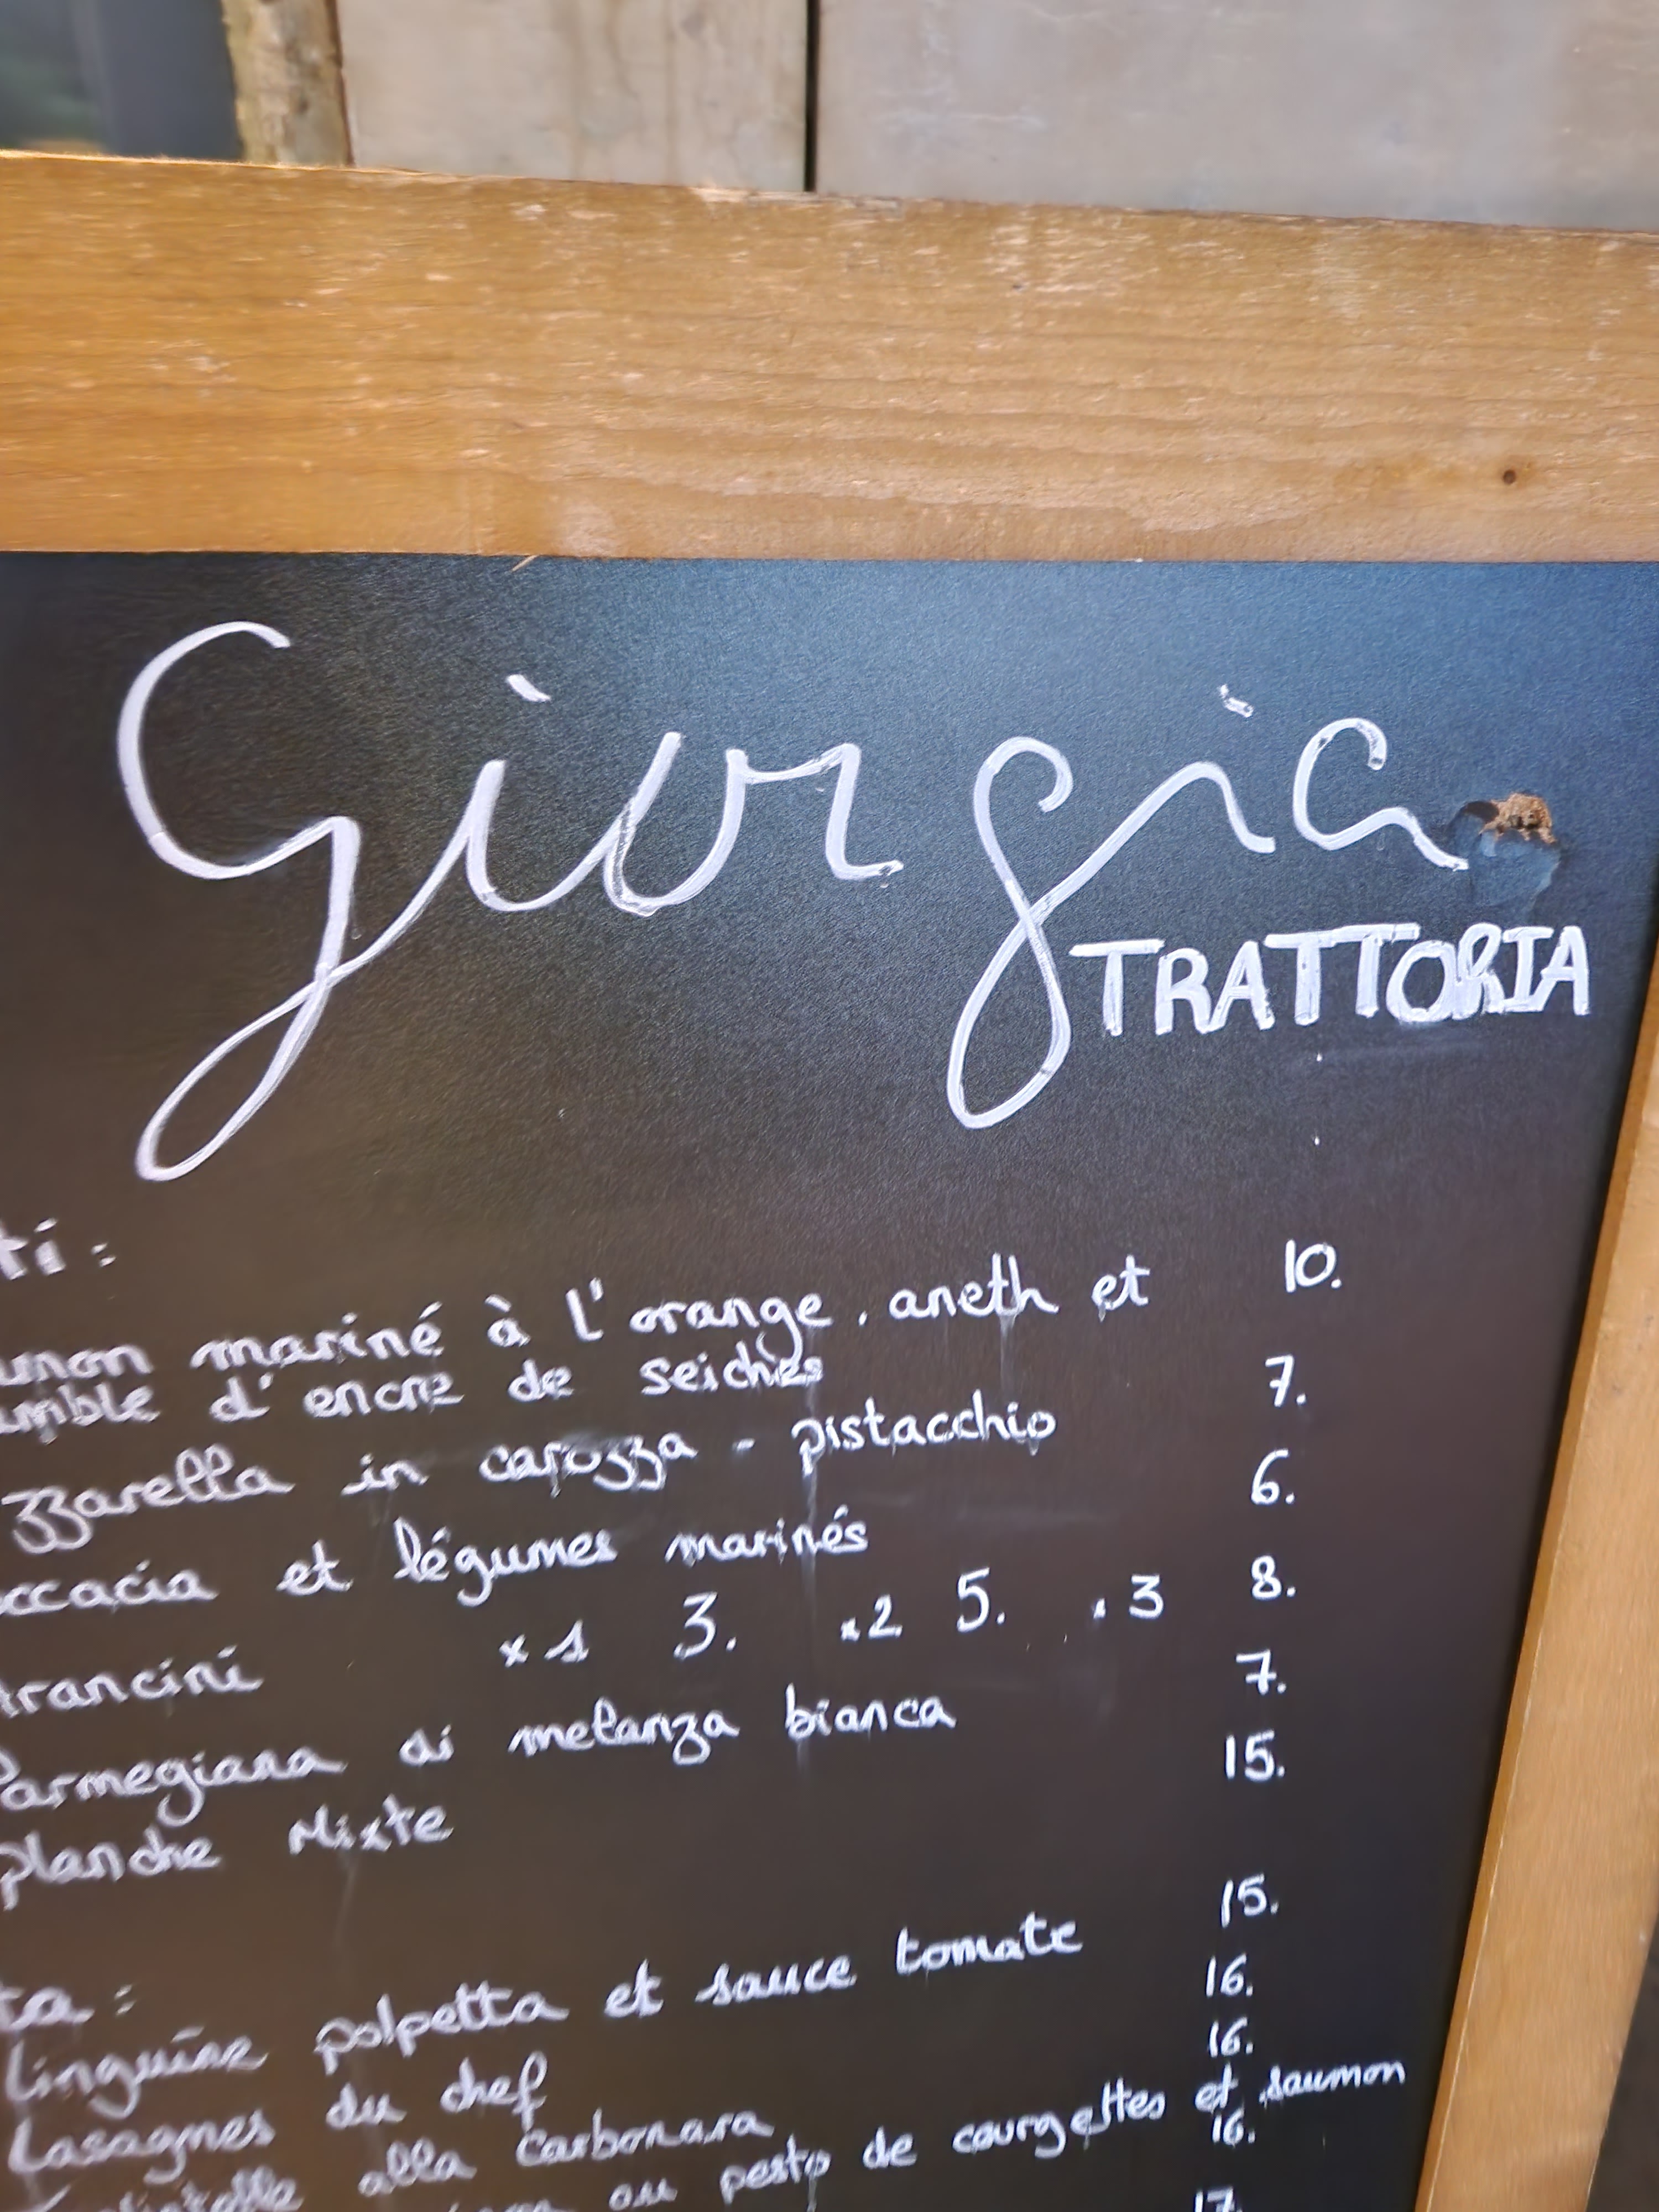 Giorgia
TRATTORIA
ti:
umon mariné à l'orange, aneth et 10.
umble d'encre de seiches
zzarella in carozza - pistacchio 7.
occacia et légumes marinés 6.
Arancini x1 3. x2 5. x3 8.
Parmegiana di melanza bianca 7.
planche Mixte 15.
ta:
Linguine polpetta et sauce tomate 15.
Lasagnes du chef 16.
alla Carbonara 16.
ou pesto de courgettes et saumon 16.
17.